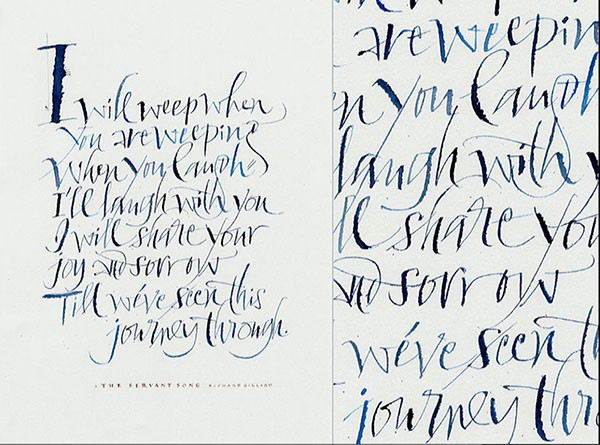 I will weep when
you are weeping
When you laugh
I'll laugh with you
I will share your
joy and sorrow
Till we've seen this
journey through.
THE SERVANT SONG RICHARD GILLARD
are weepin
n you laugh
laugh with y
ll share you
and sorrow
we've seen th
journey thr